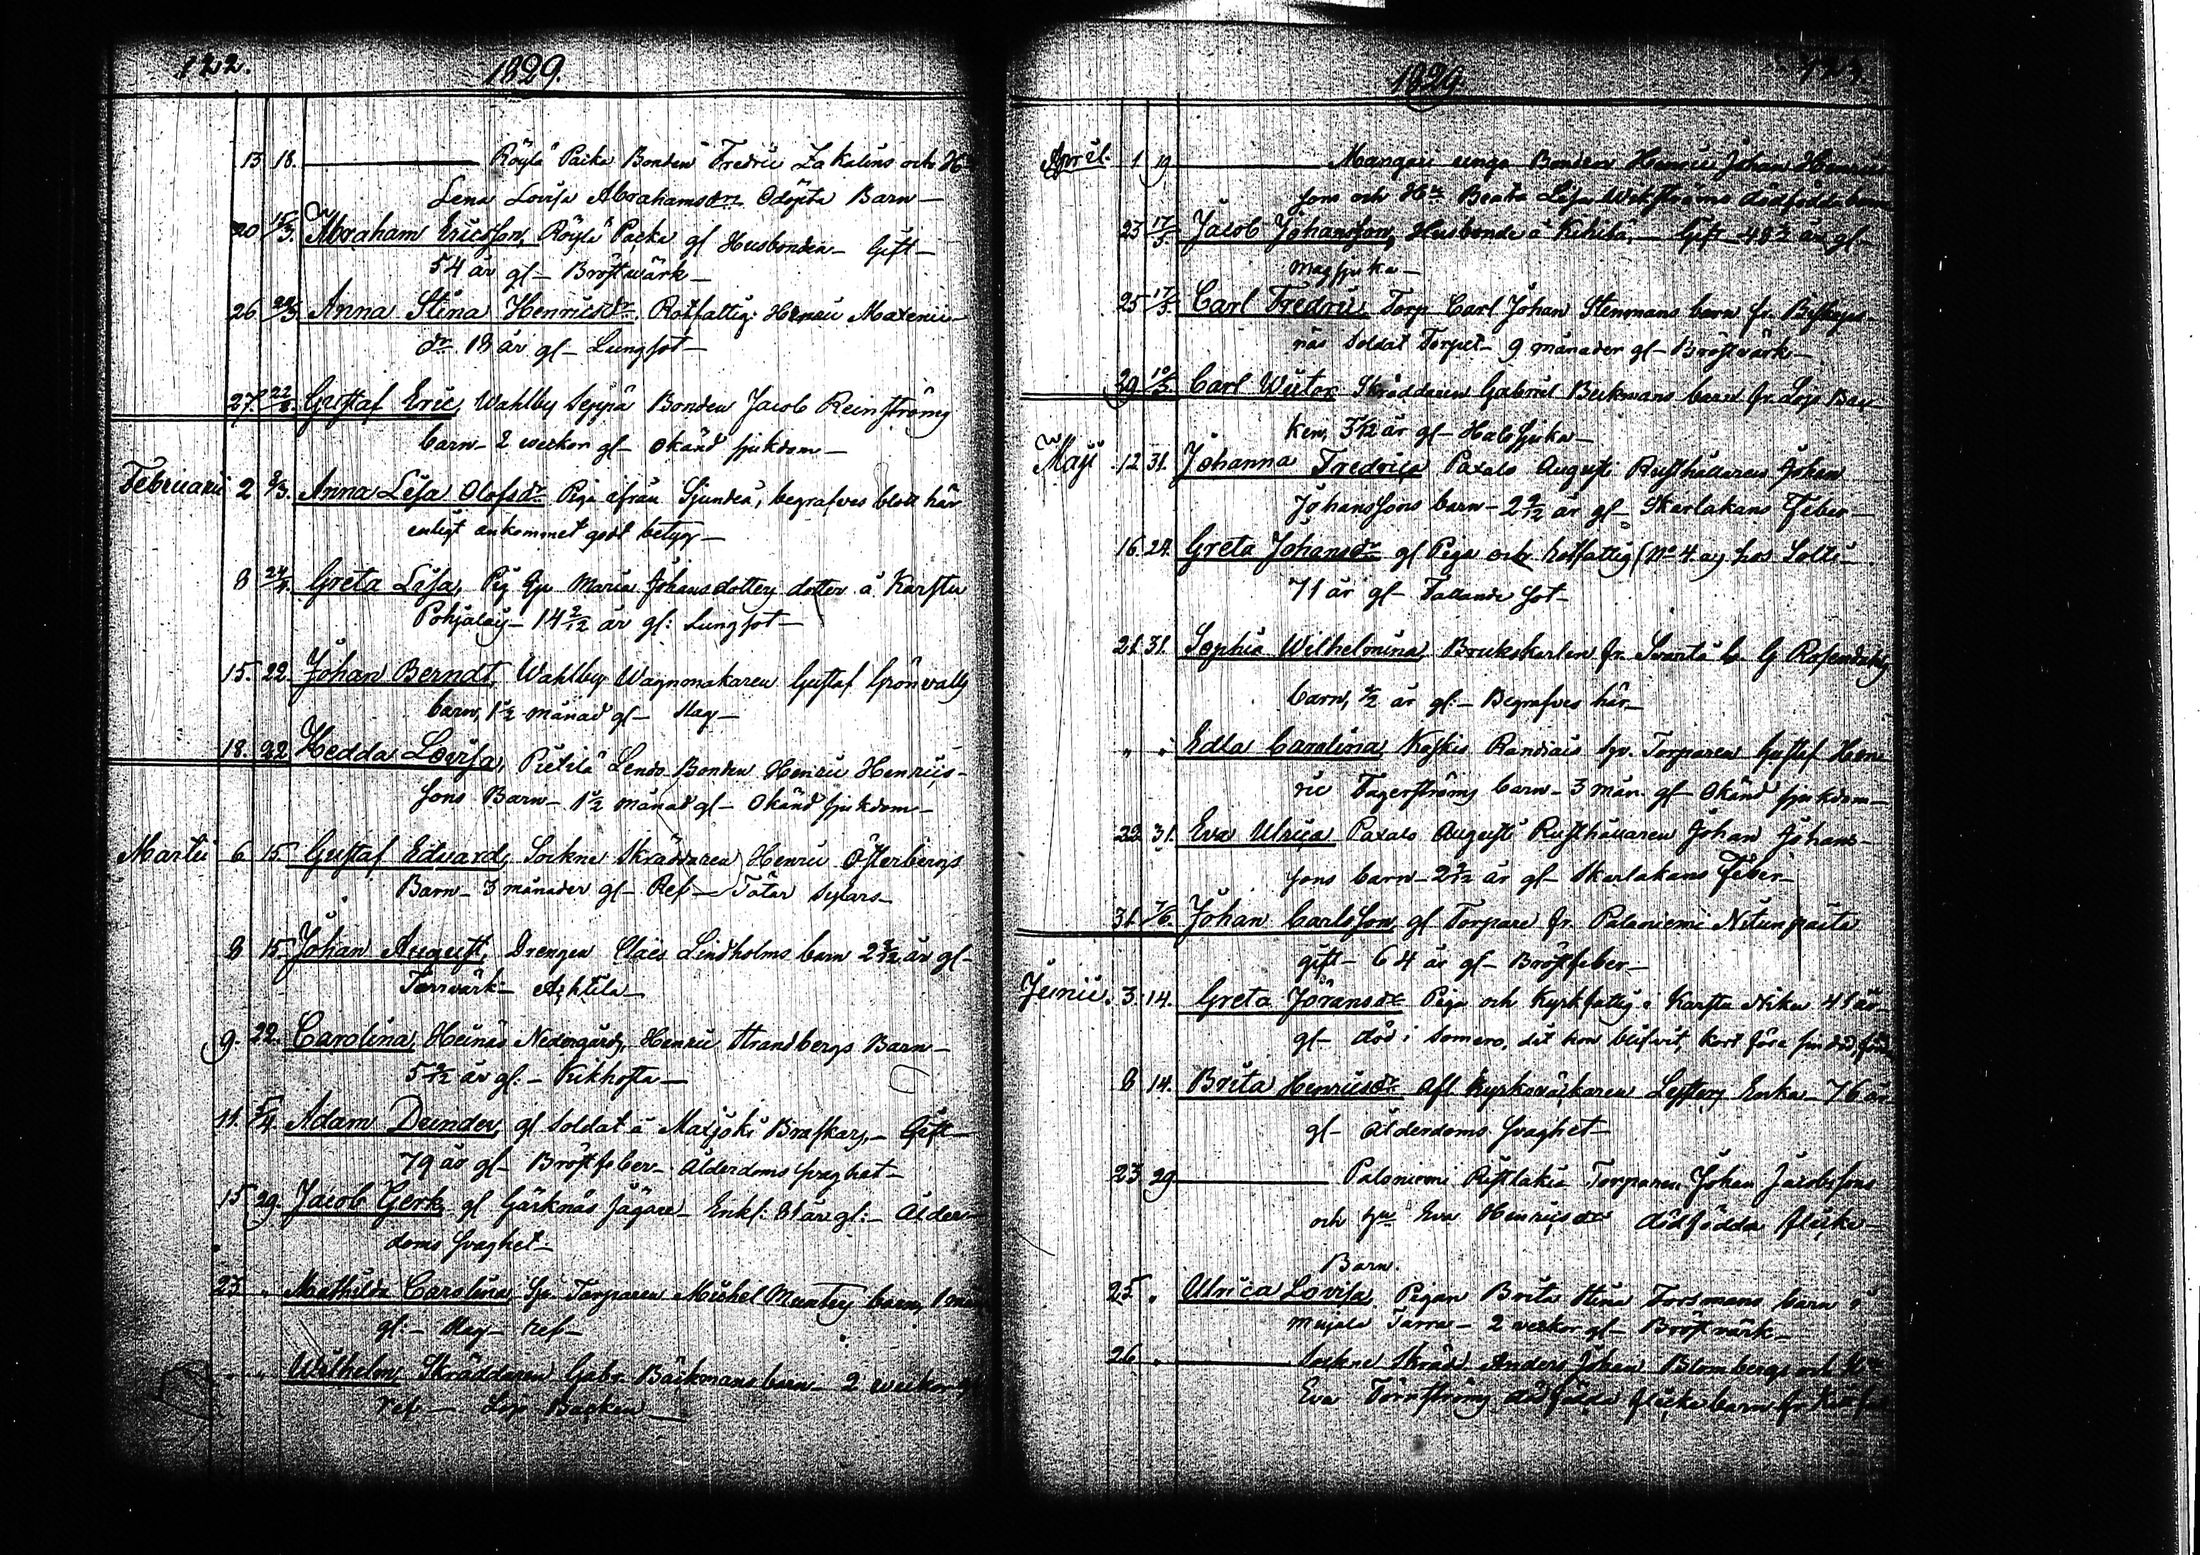 122.
1829.
13 18. Röylä Packa Bonden Fredric Zakalins och H
Lena Lovisa Abrahamsdrs Odöpta Barn
20 15/3. Abraham Ericsson, Röylä Packa gl Husbonden Gift
54 år gl Bröstwärk
26 22/3 Anna Stina Henricsdr Rotfattig Henric
dr 18 år gl Lungsot
27. 22/2. Gustaf Eric, Wahlby Seppä Bonden Jacob Reinströms
barn 2 weckor gl okänd sjukdom
Februarii 2 8/3. Anna Lisa Olofsdr Piga ifrån Sjundeå, begrafves blott här
enligt ankommet godt betyg
8 Greta Lisa, Pig Maria Johansdotters dotter å Karstu
Pohjala 14 2/12 år gl: Lungsot
15. 22. Johan Berndt, Wahlby Wagnmakaren Gustaf Grönvalls
barn, 1 1/2 månad gl Slag
18. 22 Hedda Lovisa, Pietilä Lends Bonden Henric Henrics-
sons Barn 1 1/2 månad gl Okänd sjukdom
Martii 6 15 Gustaf Edvard, Sockne Skräddaren Henric Österbergs
Barn 3 månader gl Ref Tötar Separs
8 15. Johan August, Drengen Claes Lindholms barn år gl
Torrvärk Ahtila
9. 22. Carolina, Heinäs Nedergård, Henric Strandbergs Barn
år gl: Kikhosta
11. 5/4. Adam Dunder, gl Soldat å Maxjoki Braskars, Gift
79 år gl Bröstfeber Ålderdoms svaghet
15 29. Jacob Gerk, gl Gärknäs Jägare Enkl: 81 år gl: Ålder-
doms svaghet
23 " Mathilda Carolina, Sjv Torparen Michel Muntes barn, 1 mån
gl: Slag ref
" " Wilhelm, Skräddaren Gabr. Bäckmans barn 2 weckor gl
ref Lojo Backen
1829.
123.
April. 1 19 unga Bonden Henric Johan Henrics
sons och Hu Beata Lisa Wikströms dödfödda barn
23 17/5. Jacob Johansson, Husbonde å Kihilä, Gift 48 år gl
Magsjuka
25 17/5. Carl Fredric, Torp Carl Johan Stenmans barn fr. Biskops-
näs Soldat Torpet 9 månader gl Bröstvärk
29 10/5 Carl Victor Skräddaren Gabriel Beckmans barn fr. Lojo Bac-
ken, år gl Halssjuka
Maji 12 31. Johanna Fredrica Paxalo Augusti Rusthållaren Johan
Johanssons barn år gl Skarlakans Feber
16 24. Greta Johansdr gl Piga och rotfattig (No 4 a) hos Soltti
71 år gl Fallande sot
21. 31. Sophia Wilhelmina, Brukskarlen fr. Svartå C. G Rosendahls
barn, 1/2 år gl: Begrafves här
" " Edla Carolina, Koskis Randiais Sjv. Torparen Gustaf Hen-
ric Fagerströms barn 3 mån. gl Okänd sjukdom
22 31. Eva Ulrica Paxalo Augusti Rusthållaren Johan Johans-
sons barn år gl Skarlakans Feber
31. 7/6. Johan Carlsson, gl Torpare fr. Paloniemi Nitunpäitä
gift 64 år gl Bröstfeber
Junii. 3. 14. Greta Jöransdr Piga och Kyrkfattig i Karstu Nikus 41 år
gl död i Somero, dit hon blifvit kort före sin död, förd
8 14. Brita Henricsdr afl Kyrkoväktaren Lefflers Enka 76 år
gl Ålderdoms svaghet
23 29 Paloniemi Ristlakia Torparen Johan Jacobssons
och Hu Eva Henricsdrs dödfödda flicke
Barn.
25 " Ulrica Lovisa Pigan Brita Stina Forsmans barn å
Mujala Tarra 2 veckor gl Bröstvärk
26 " Sockne Skräd. Anders Johan Blombergs och Hu
Eva Törnströms dödfödda flickebarn fr.